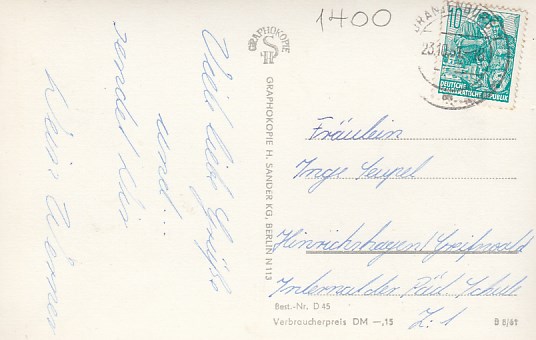 1400
ORANIENBURG
23.10.
10
DEUTSCHE
DEMOKRATISCHE REPUBLIK
GRAPHOKOPIE
H S
GRAPHOKOPIE H. SANDER KG, BERLIN N 113
Viel liebe Grüße
und...
sendet Dir
Dein Werner
Fräulein
Inge Seupel
Heinrichshagen/Greifswald
Internat der Päd. Schule
Z. 1
Best.-Nr. D 45
Verbraucherpreis DM —,15
B 8/61